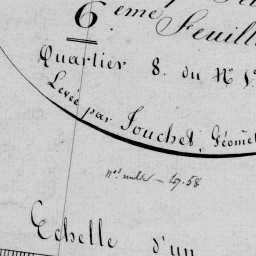 6 eme Feuill
Quartier S. du N° 1
Levée par Jouchet, Géomèt
Echelle d'un